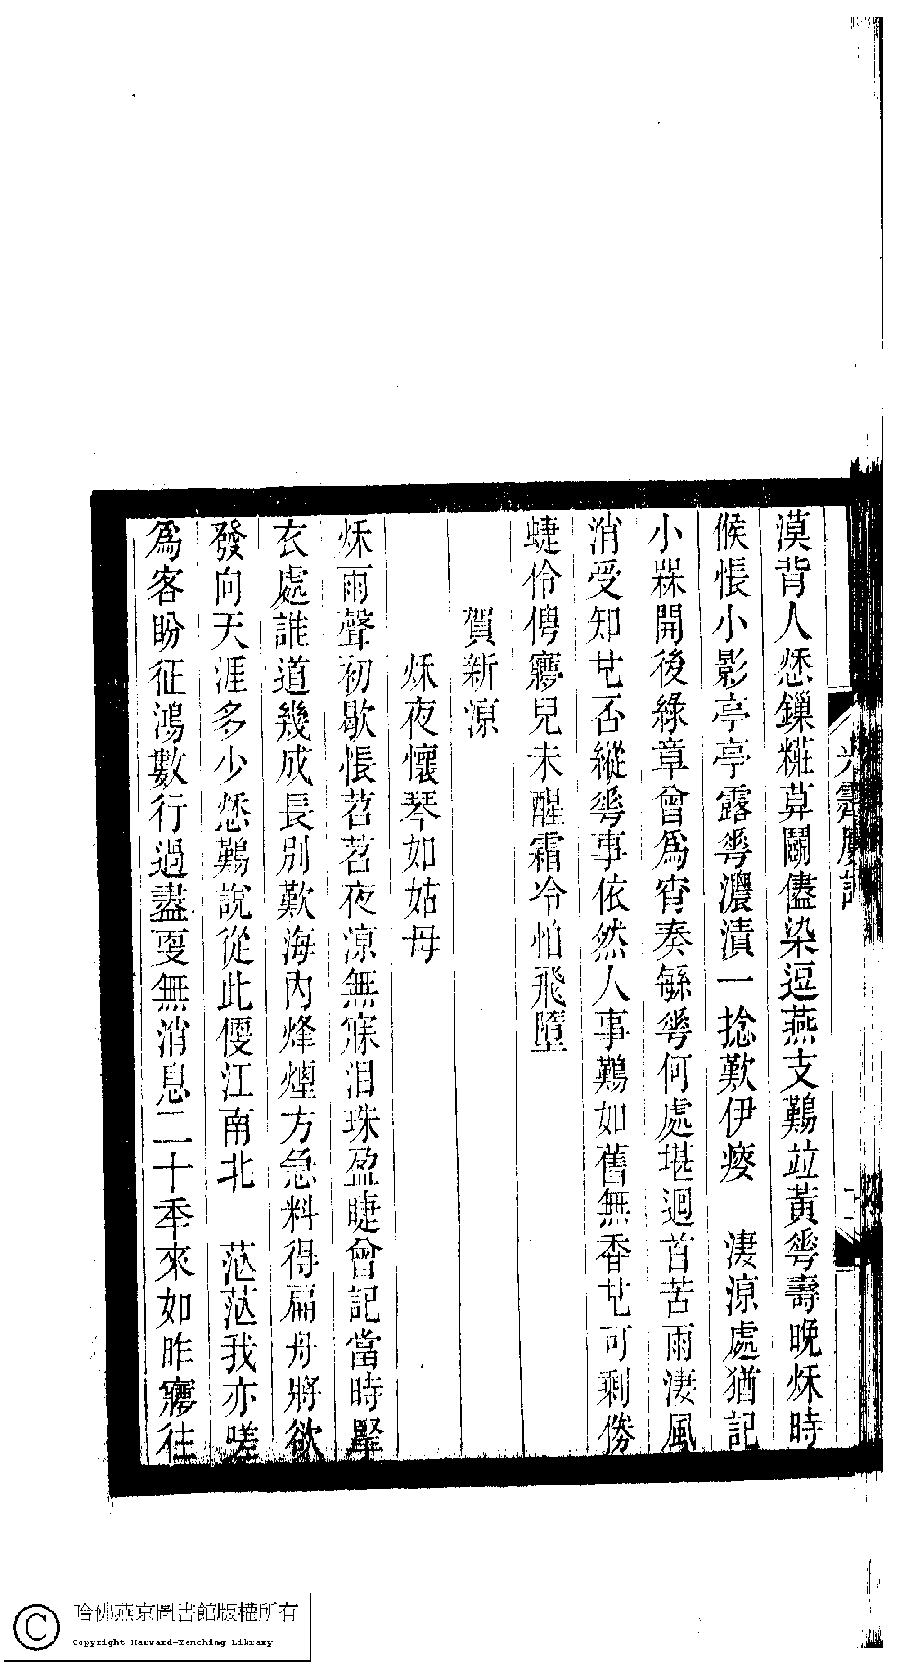 漠背人愁鏁糚莫鬭儘染逗燕支鷬竝黃蕐壽晚秌時
候悵小影亭亭露蕐濃漬一捻歎伊瘦　淒涼處猶記
小槑開後綠章曾爲宵奏緐蕐何處堪迴首苦雨淒風
消受知𠀍否縱蕐事依然人事鷬如舊無香𠀍可剩㑻
蜨伶俜㝱兒未醒霜冷怕飛墮
賀新涼
秌夜懷琴如姑母
秌雨聲初歇悵苕苕夜涼無寐淚珠盈睫曾記當時擧
玄處誰道幾成長別歎海內烽煙方急料得扁舟將欲
發向天涯多少愁鷬說從此㥷江南北　茫茫我亦嗟
爲客盼征鴻數行過盡㪅無消息二十秊來如昨㝱往
哈佛燕京圖書館版權所有
Copyright Harvard-Yenching Library